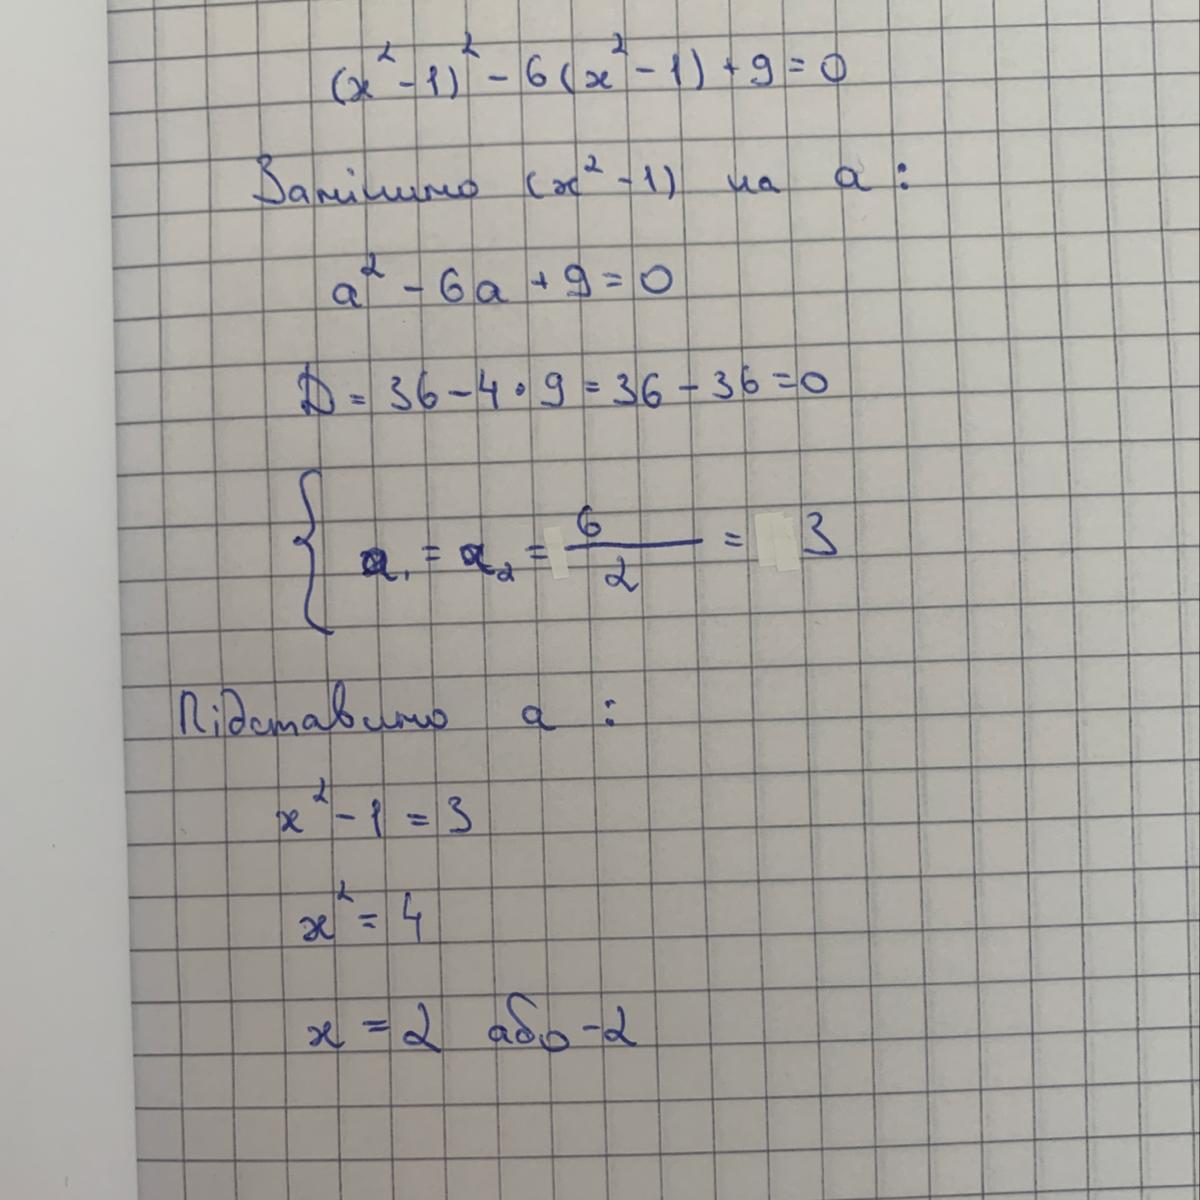 (x² - 1)² - 6(x² - 1) + 9 = 0
Замінимо (x² - 1) на a :
a² - 6a + 9 = 0
D = 36 - 4 · 9 = 36 - 36 = 0
{ a₁ = a₂ = 6/2 = 3
Підставимо a :
x² - 1 = 3
x² = 4
x = 2 або -2